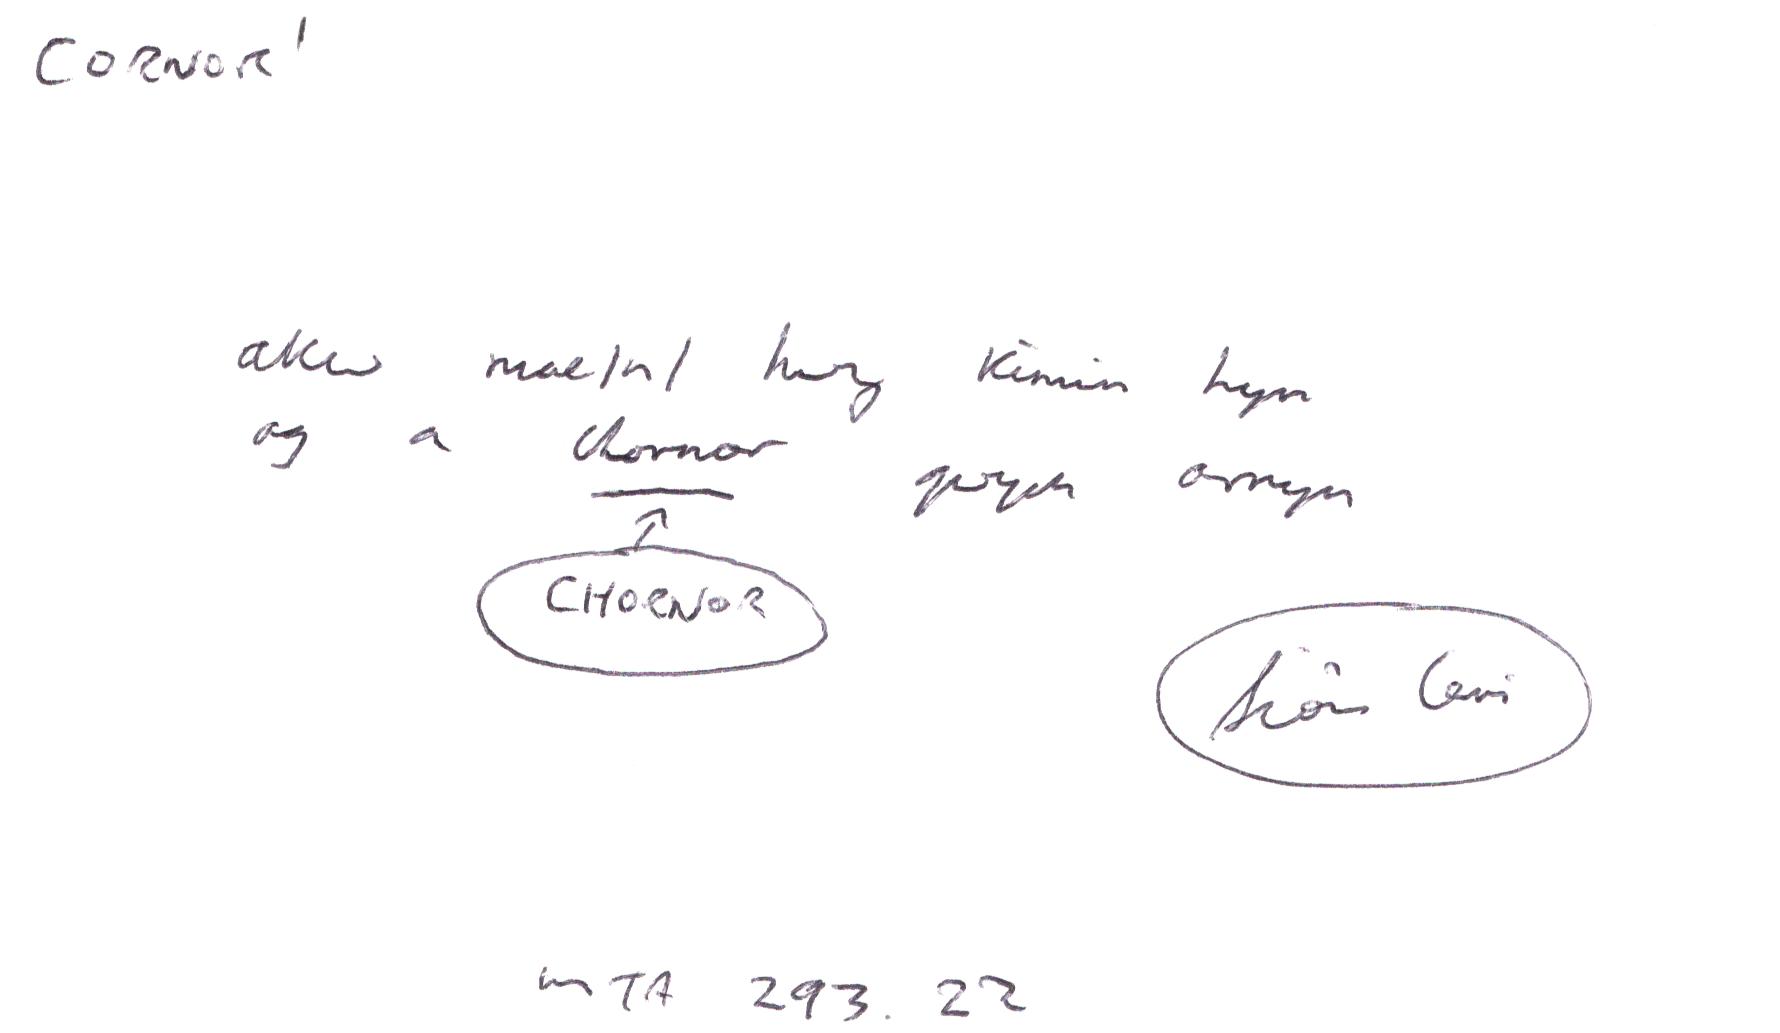 CORNOR'
akw mae/n/ hwy kimin hyn
ag a chornor gwych arnyn
CHORNOR
Siôn Ceri
mTA 293.22